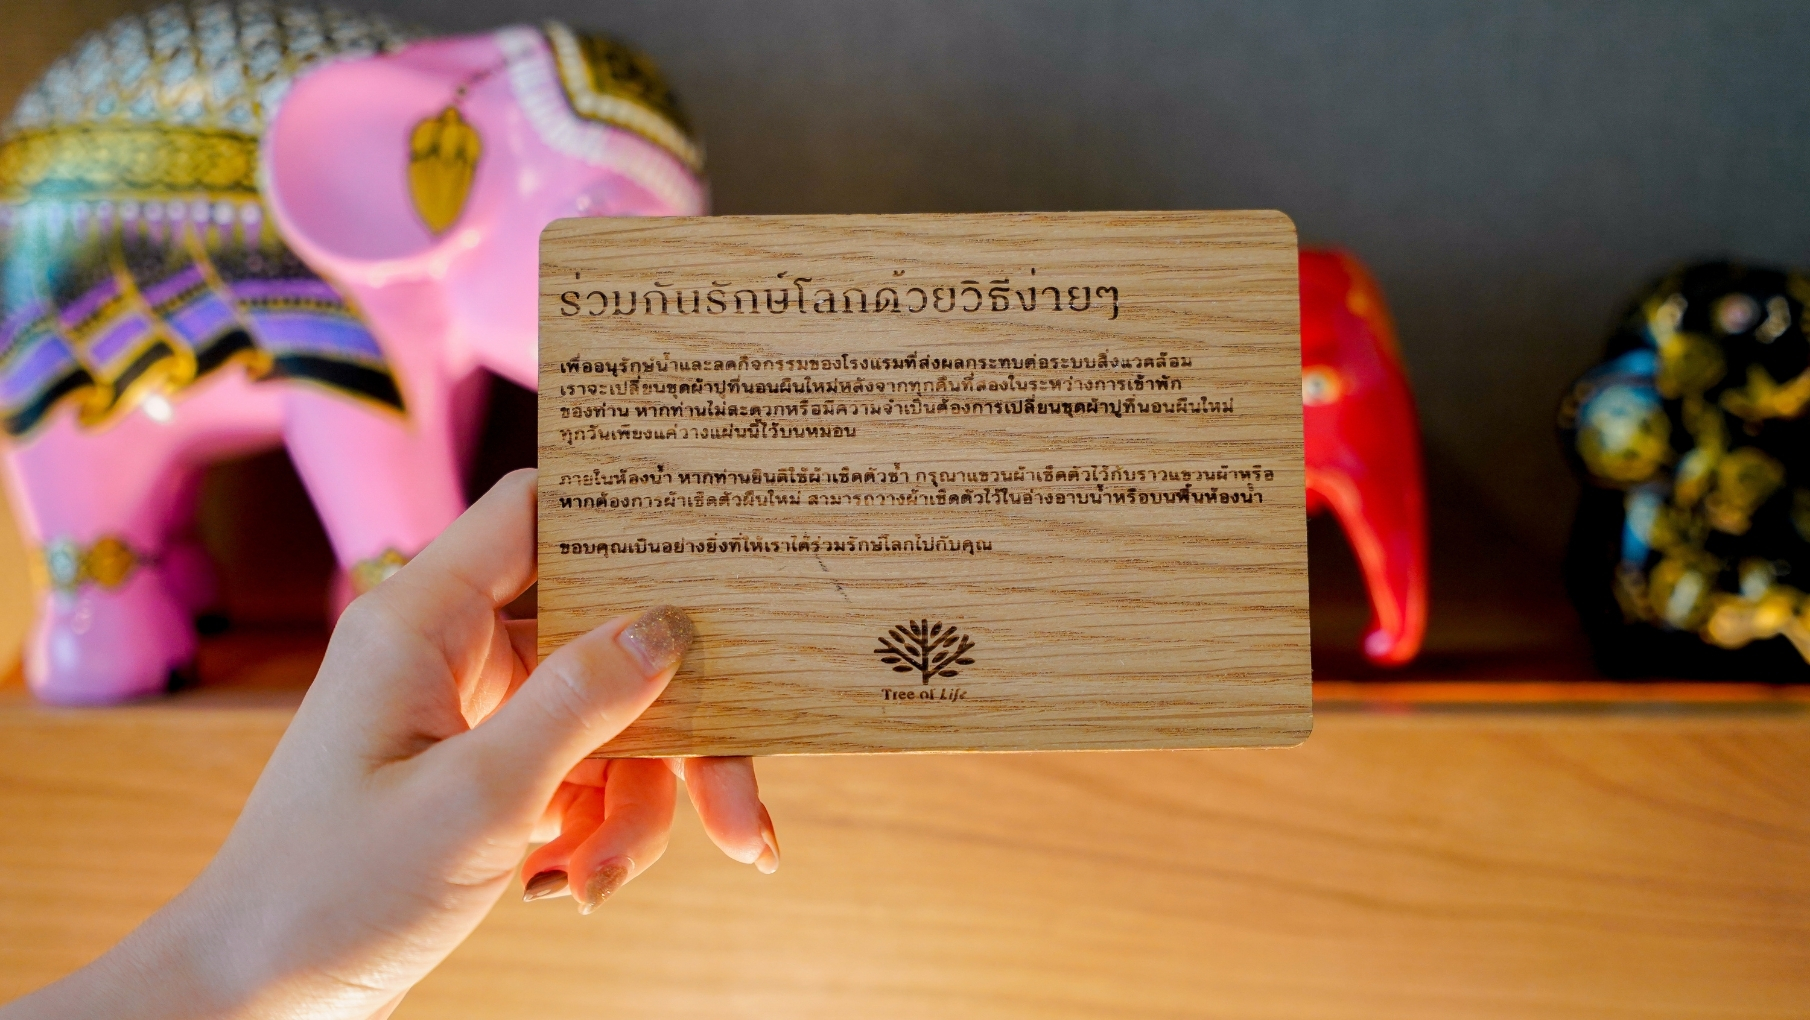 ร่วมกันรักษ์โลกด้วยวิธีง่ายๆ
เพื่ออนุรักษ์น้ำและลดกิจกรรมของโรงแรมที่ส่งผลกระทบต่อระบบสิ่งแวดล้อม
เราจะเปลี่ยนชุดผ้าปูที่นอนผืนใหม่หลังจากทุกคืนที่สองในระหว่างการเข้าพัก
ของท่าน หากท่านไม่สะดวกหรือมีความจำเป็นต้องการเปลี่ยนชุดผ้าปูที่นอนผืนใหม่
ทุกวันเพียงแค่วางแผ่นนี้ไว้บนหมอน
ภายในห้องน้ำ หากท่านยินดีใช้ผ้าเช็ดตัวซ้ำ กรุณาแขวนผ้าเช็ดตัวไว้กับราวแขวนผ้าหรือ
หากต้องการผ้าเช็ดตัวผืนใหม่ สามารถวางผ้าเช็ดตัวไว้ในอ่างอาบน้ำหรือบนพื้นห้องน้ำ
ขอบคุณเป็นอย่างยิ่งที่ให้เราได้ร่วมรักษ์โลกไปกับคุณ
Tree of Life